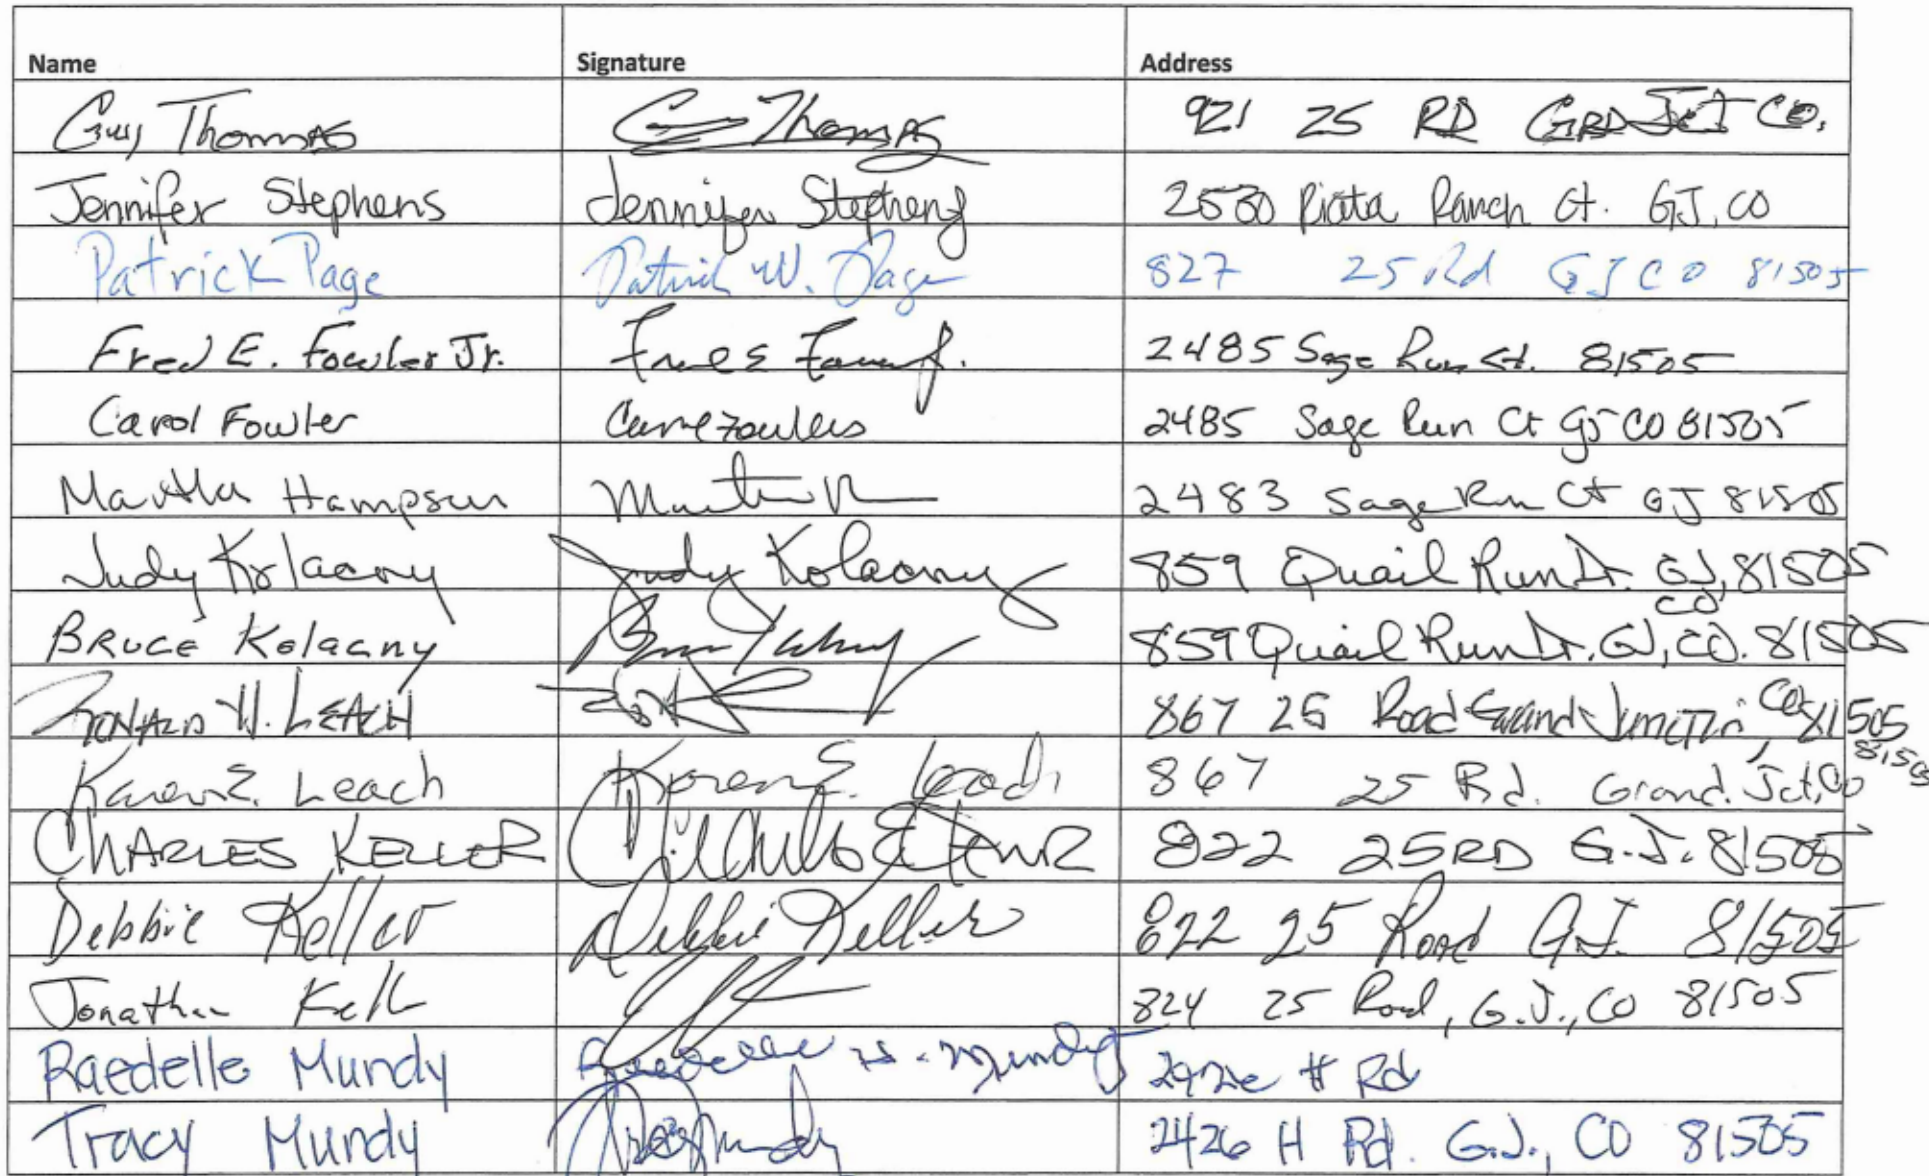 Name Signature Address
Guy Thomas Guy Thomas 921 25 RD GRD Jct CO.
Jennifer Stephens Jennifer Stephens 2530 Piata Ranch Ct. GJ, CO
Patrick Page Patrick W. Page 827 25 Rd GJ CO 81505
Fred E. Fowler Jr. Fred E 2485 Sage Run Ct. 81505
Carol Fowler Carol Fowler 2485 Sage Run Ct GJ CO 81505
Martha Hampson 2483 Sage Run Ct GJ 81505
Judy Kolacny Judy Kolacny 859 Quail Run Dr. GJ, 81505
CO
BRUCE Kolacny 859 Quail Run Dr. GJ, CO. 81505
RONALD W. LEACH 867 25 Road Grand Junction Co 81505
Karen E. Leach Karen E. Leach 867 25 Rd. Grand. Jct, Co 81505
CHARLES KELLER 822 25 RD G.J. 81505
Debbie Keller Debbie Keller 822 25 Road G.J. 81505
Jonathan Kell 824 25 Road, G.J., CO 81505
Raedelle Mundy Raedelle Mundy H Rd
Tracy Mundy Tracy Mundy 2426 H Rd. G.J., CO 81505